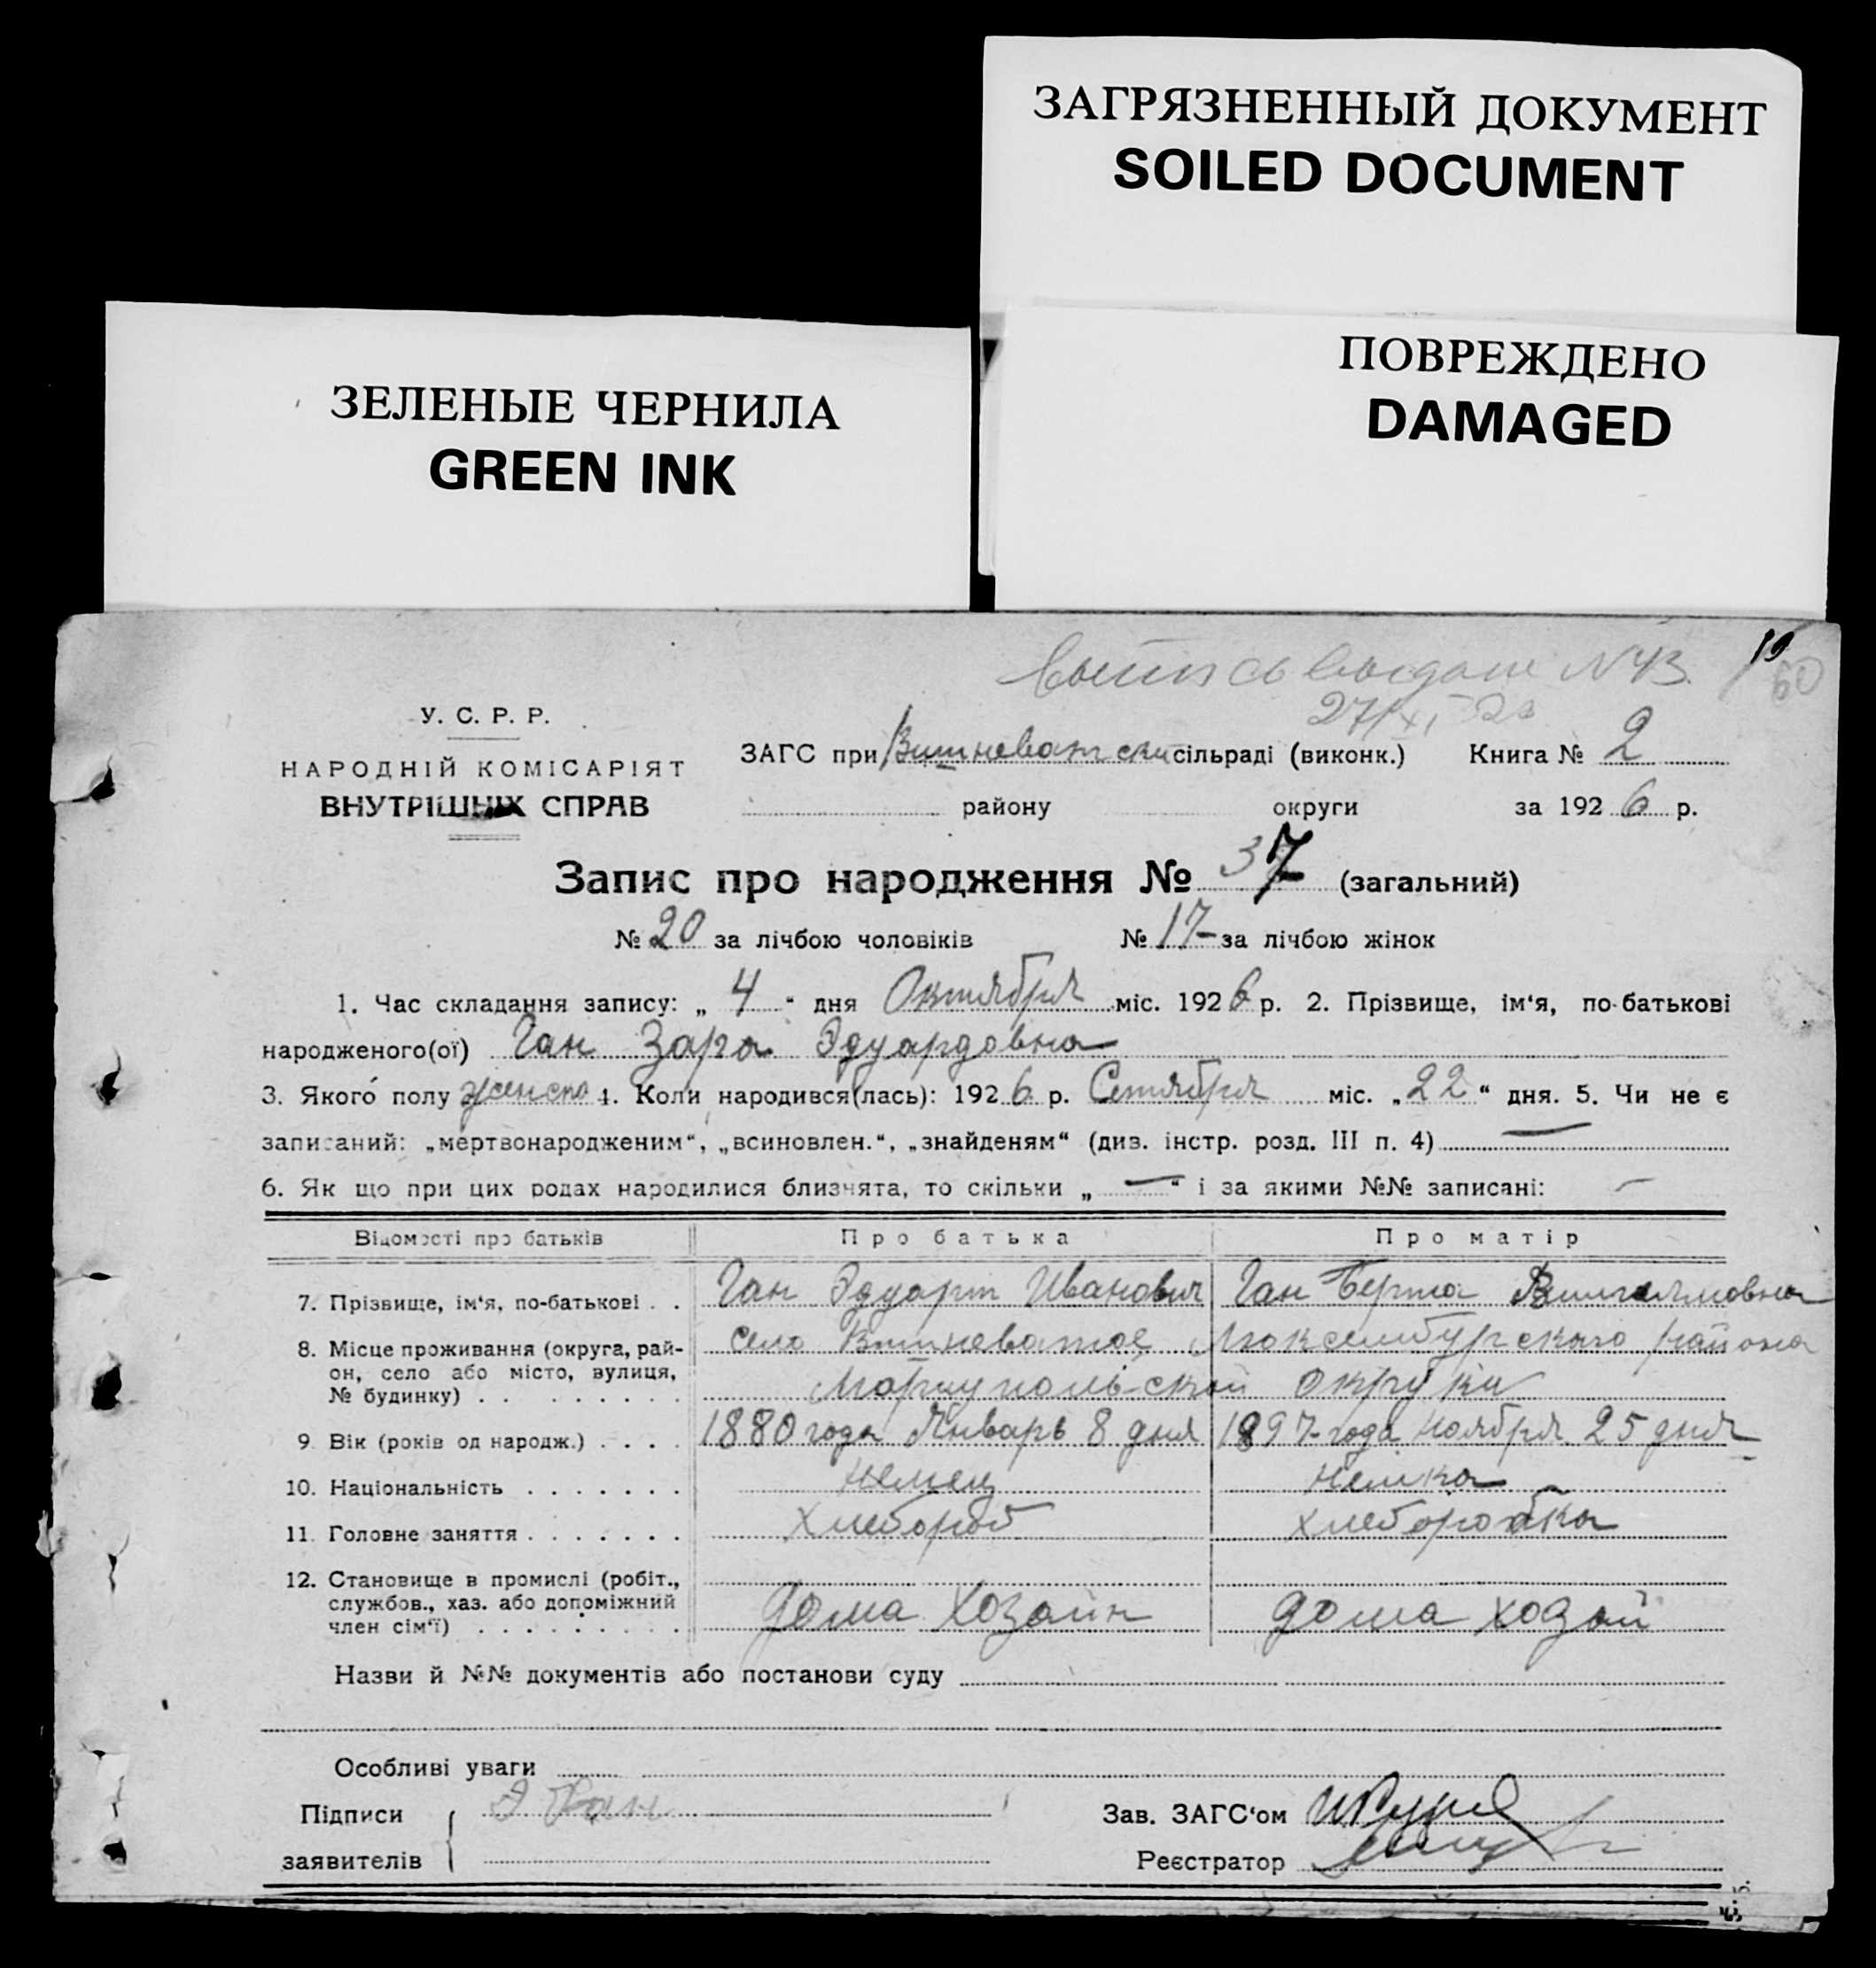 ЗАГРЯЗНЕННЫЙ ДОКУМЕНТ
SOILED DOCUMENT
ПОВРЕЖДЕНО
DAMAGED
ЗЕЛЕНЫЕ ЧЕРНИЛА
GREEN INK
N 43. 19 60
27/XI
У. С. Р. Р.
НАРОДНІЙ КОМІСАРІЯТ
ВНУТРІШНІХ СПРАВ
ЗАГС при Вишневатски сільраді (виконк.) Книга № 2
району округи за 1926 р.
Запис про народження № 37 (загальний)
№ 20 за лічбою чоловіків № 17 за лічбою жінок
1. Час складання запису: „ 4 “ дня Октября міс. 1926 р. 2. Прізвище, ім‘я, по-батькові
народженого(ої) Ган Зара Эдуардовна
3. Якого полу женско 4. Коли народився(лась): 1926 р. Сентября міс. „22“ дня. 5. Чи не є
записаний: „мертвонародженим“, „всиновлен.“, „знайденям“ (див. інстр. розд. III п. 4) —
6. Як що при цих родах народилися близнята, то скільки „ — “ і за якими №№ записані: —
Відомості про батьків Про батька Про матір
7. Прізвище, ім‘я, по-батькові . . Ган Эдуарт Иванович Ган Берта Вильгельмовна
8. Місце проживання (округа, рай-
он, село або місто, вулиця,
№ будинку) . . . . . . . . .
село Вишневатое Люксембургского района
Мариупольской округи
9. Вік (років од народж.) . . . . 1880 года Январь 8 дня 1897 года Ноября 25 дня
10. Національність . . . . . . . немец немка
11. Головне заняття . . . . . . . хлебороб хлеборобка
12. Становище в промислі (робіт.,
службов., хаз. або допоміжний
член сім‘ї) . . . . . . . . .
дома хозаин дома хозай
Назви й №№ документів або постанови суду
Особливі уваги
Підписи
заявителів
Э Ган
Зав. ЗАГС‘ом
Реєстратор